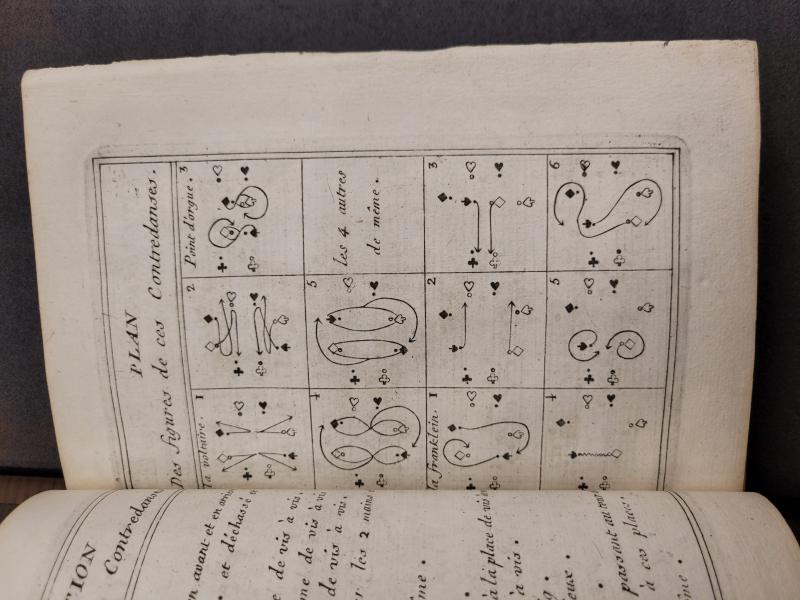 PLAN
Des figures de ces Contredanses.
la voltaire. 1
2
Point d'orgue. 3
4
5
les 4 autres
de même.
la franklein. 1
2
3
4
5
6
TION
Contredan
en avant et en arri
et déchassé
de vis à vis.
me de vis à vi
de vis à vis.
les 2 mains
me.
à la place de vis
à vis.
eux.
passant au
à ces place
me.